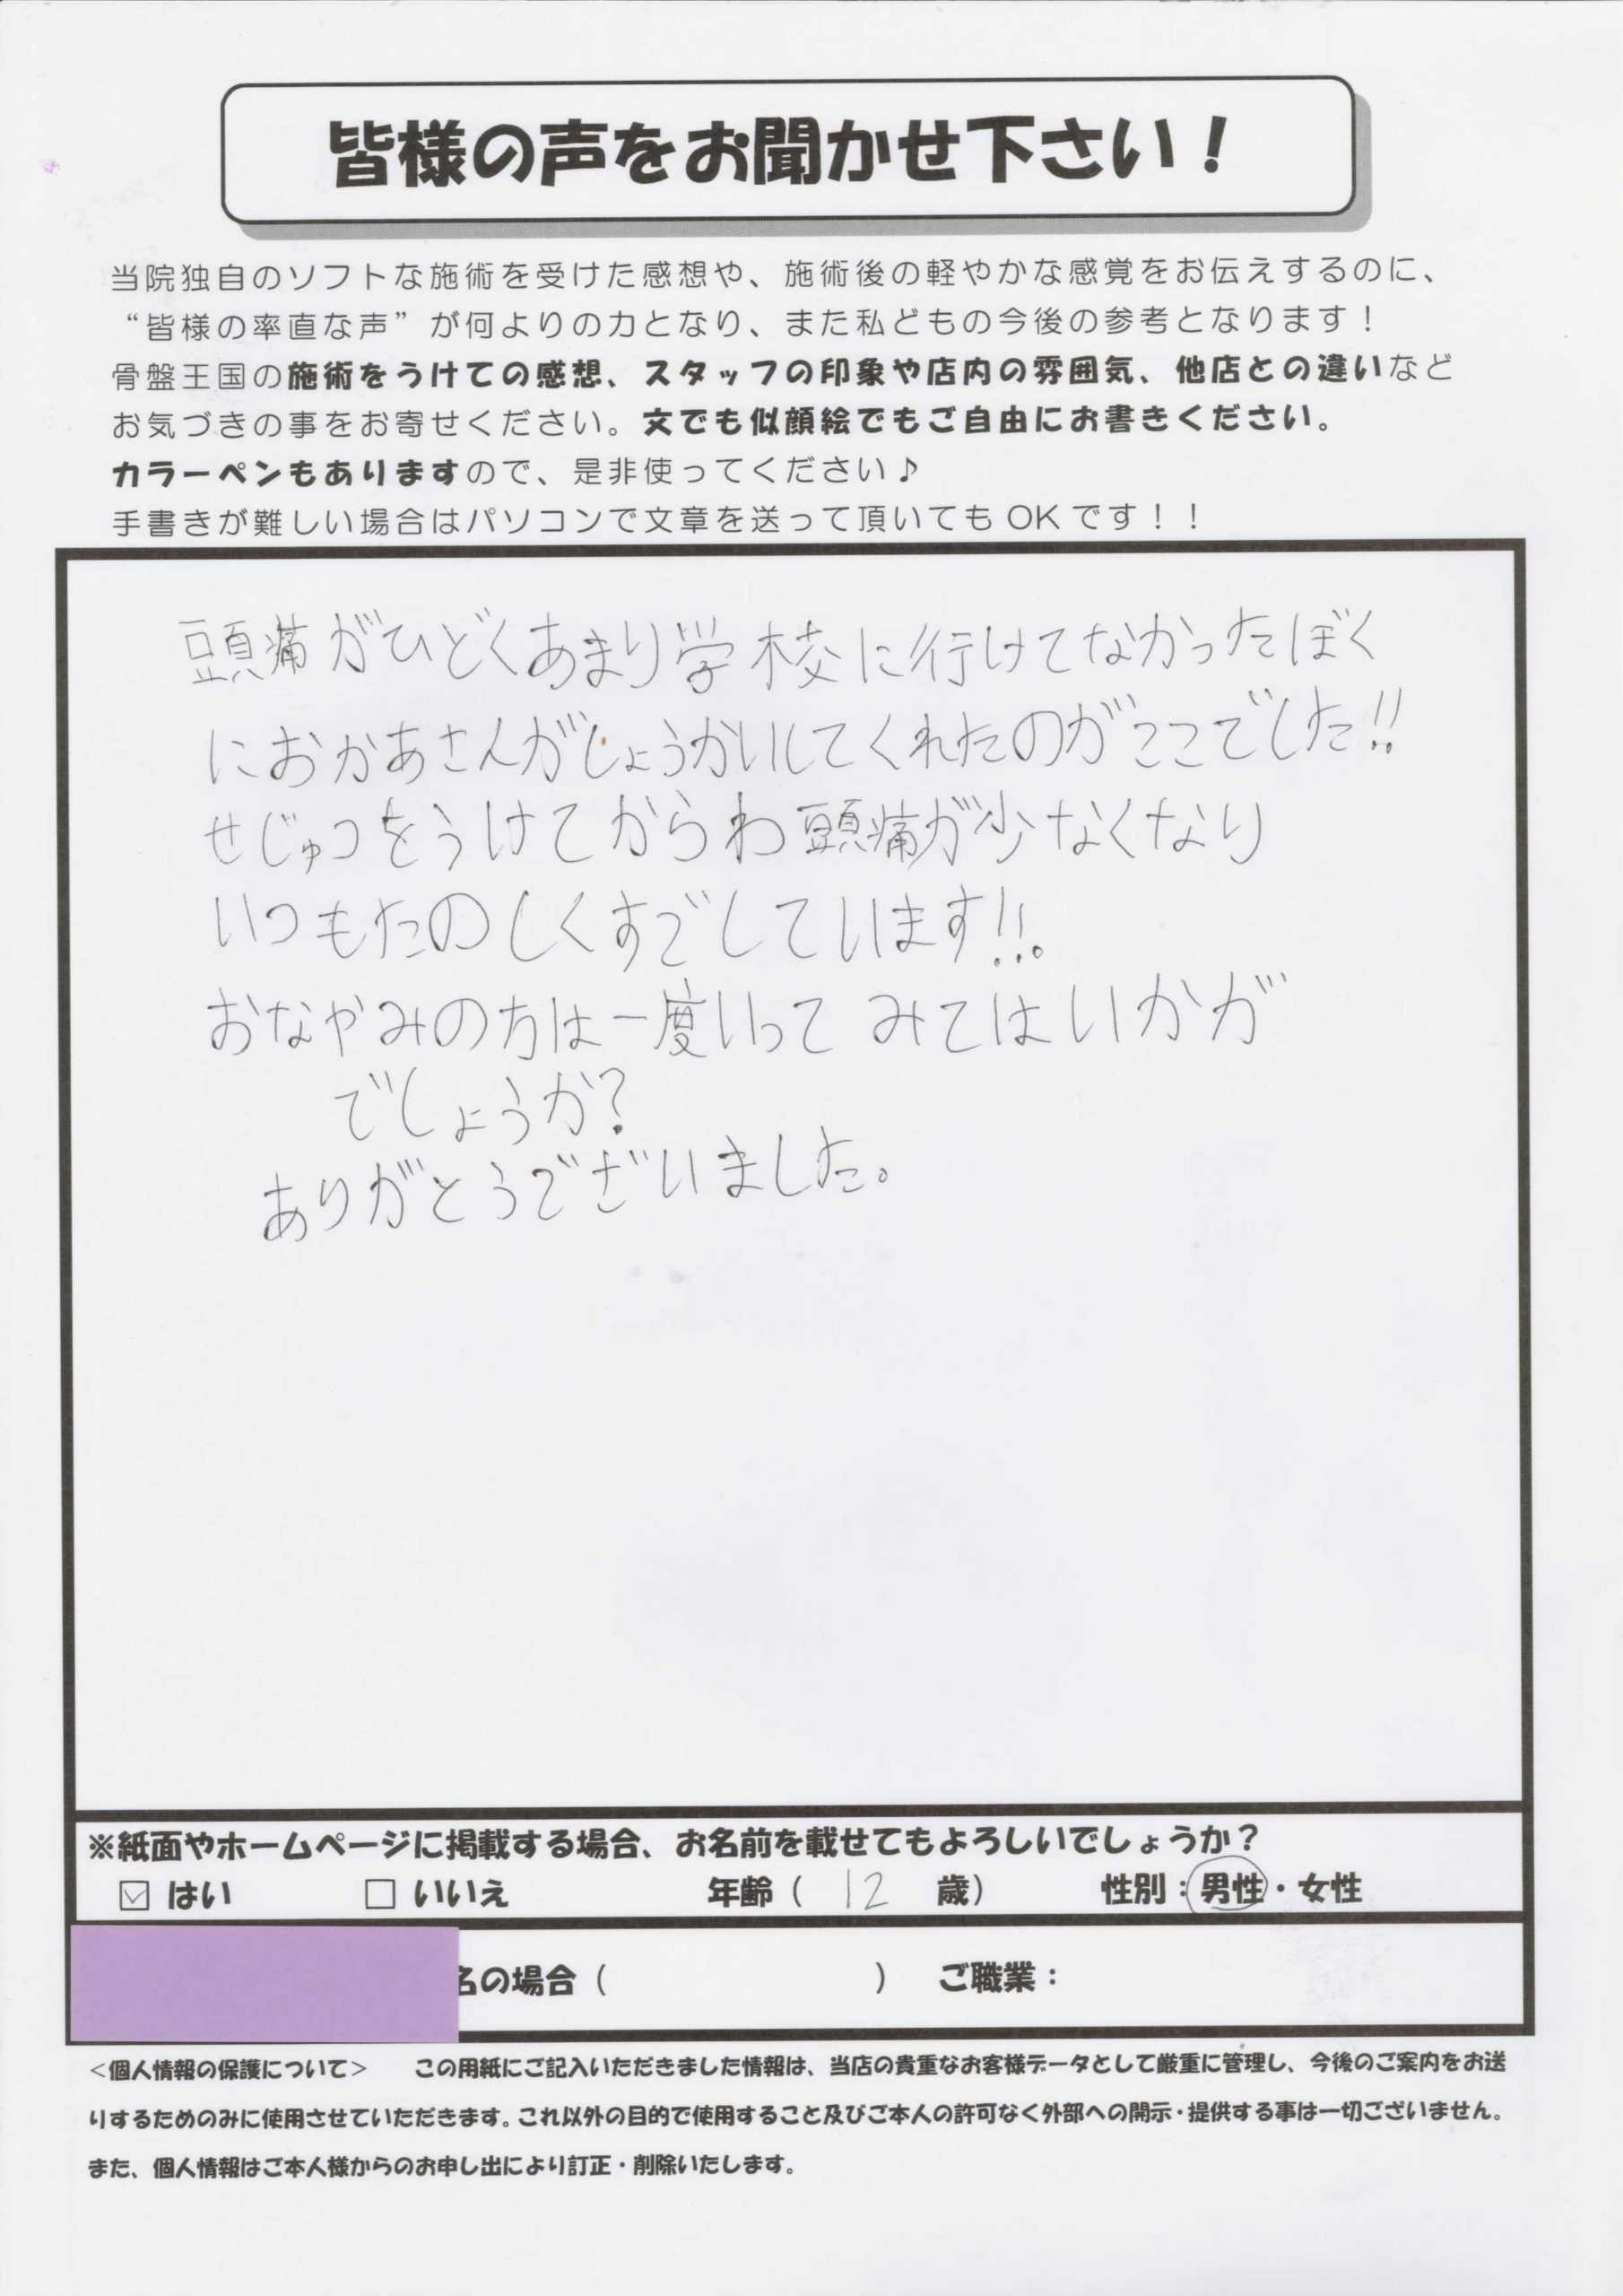 皆様の声をお聞かせ下さい！
当院独自のソフトな施術を受けた感想や、施術後の軽やかな感覚をお伝えするのに、
“皆様の率直な声”が何よりの力となり、また私どもの今後の参考となります！
骨盤王国の施術をうけての感想、スタッフの印象や店内の雰囲気、他店との違いなど
お気づきの事をお寄せください。文でも似顔絵でもご自由にお書きください。
カラーペンもありますので、是非使ってください♪
手書きが難しい場合はパソコンで文章を送って頂いてもOKです！！
頭痛がひどくあまり学校に行けてなかったぼく
におかあさんがしょうかいしてくれたのがここでした!!
せじゅつをうけてからわ頭痛が少なくなり
いつもたのしくすごしています!!。
おなやみの方は一度いってみてはいかが
でしょうか?
ありがとうございました。
※紙面やホームページに掲載する場合、お名前を載せてもよろしいでしょうか？
☑ はい □ いいえ 年齢（ 12 歳） 性別：男性・女性
名の場合（ ） ご職業：
＜個人情報の保護について＞ この用紙にご記入いただきました情報は、当店の貴重なお客様データとして厳重に管理し、今後のご案内をお送
りするためのみに使用させていただきます。これ以外の目的で使用すること及びご本人の許可なく外部への開示・提供する事は一切ございません。
また、個人情報はご本人様からのお申し出により訂正・削除いたします。